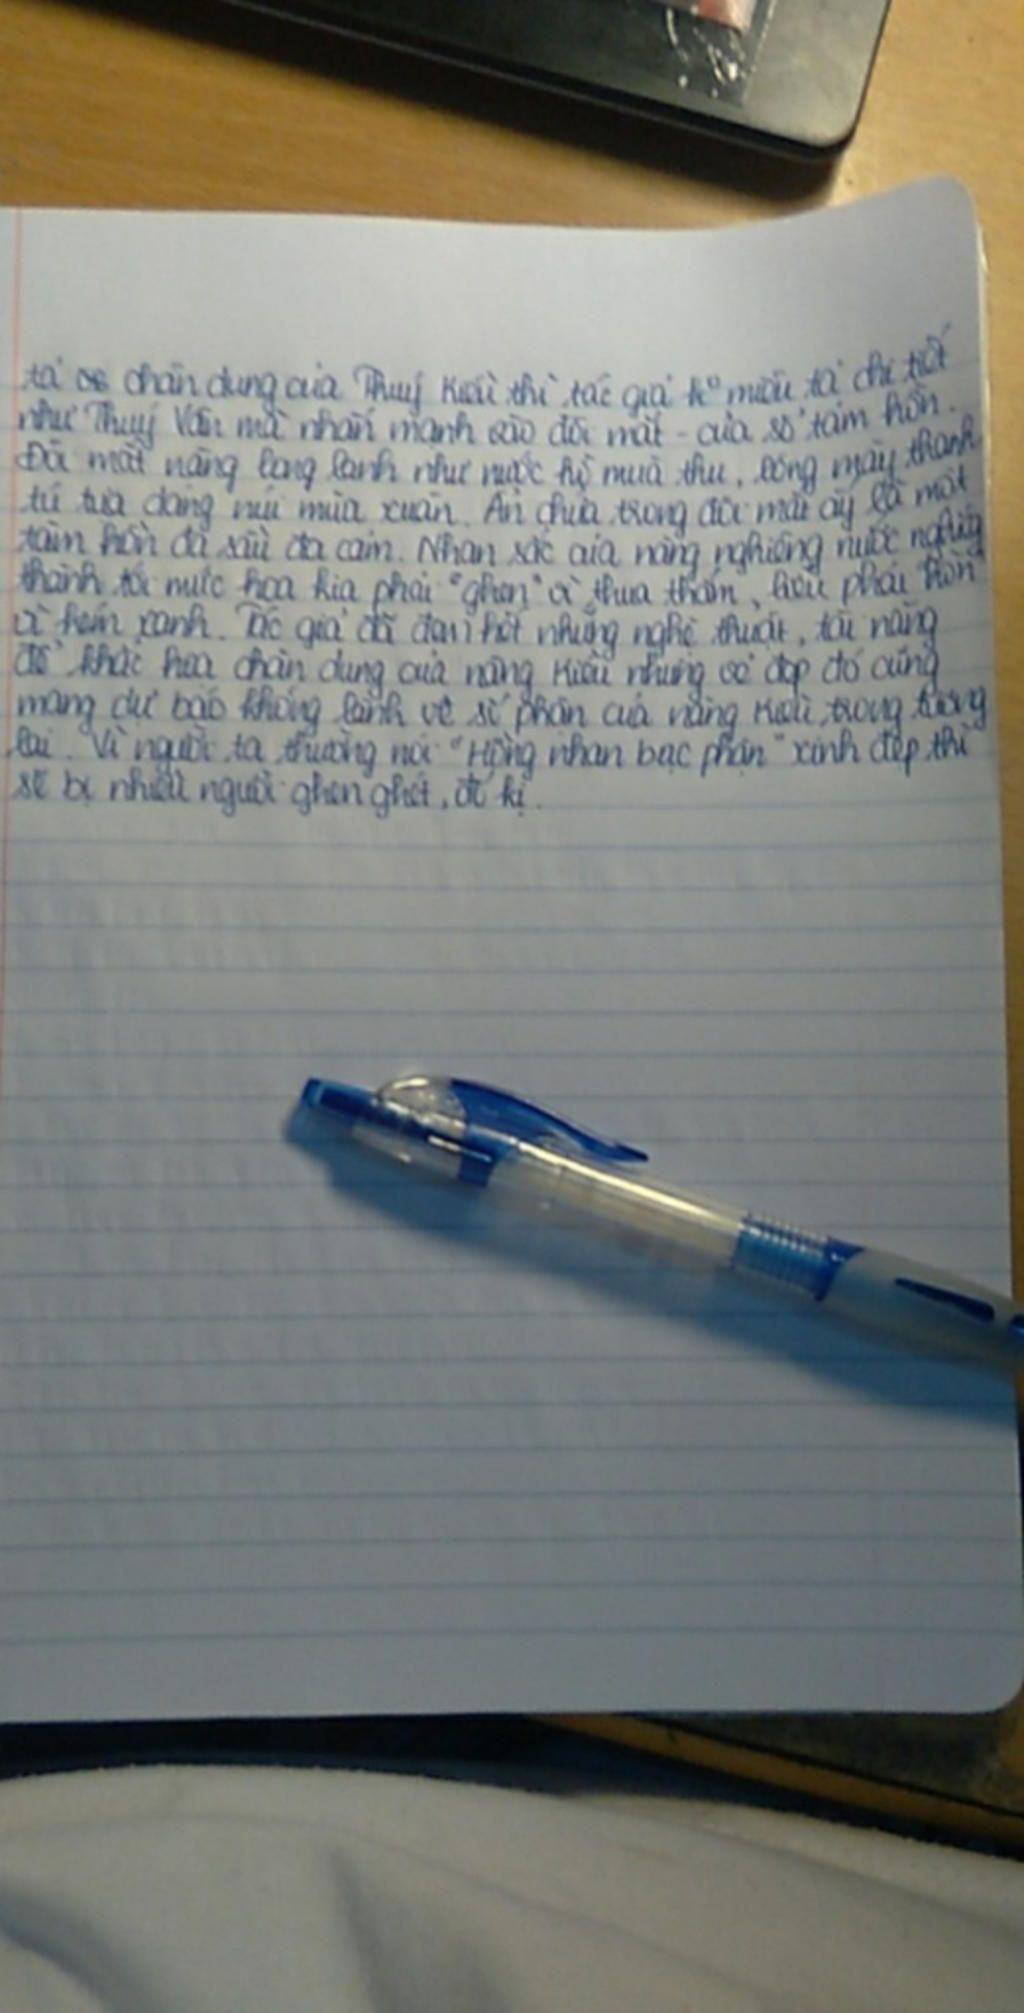 tả chân dung của Thuý Kiều thì tác giả k° miêu tả chi tiết
như Thuý Vân mà nhấn mạnh vào đôi mắt - cửa sổ tâm hồn.
Đôi mắt nàng long lanh như nước hồ mùa thu, lông mày thanh
tú tựa dáng núi mùa xuân. Ẩn chứa trong đôi mắt ấy là một
tâm hồn đa sầu đa cảm. Nhan sắc của nàng nghiêng nước nghiêng
thành tới mức hoa kia phải "ghen" vì thua thắm, liễu phải hờn
vì kém xanh. Tác giả đã dành hết những nghệ thuật, tài năng
để khắc hoạ chân dung của nàng Kiều nhưng vẻ đẹp đó cũng
mang dự báo không lành về số phận của nàng Kiều trong tương
lai. Vì người ta thường nói "Hồng nhan bạc phận" xinh đẹp thì
sẽ bị nhiều người ghen ghét, đố kị.